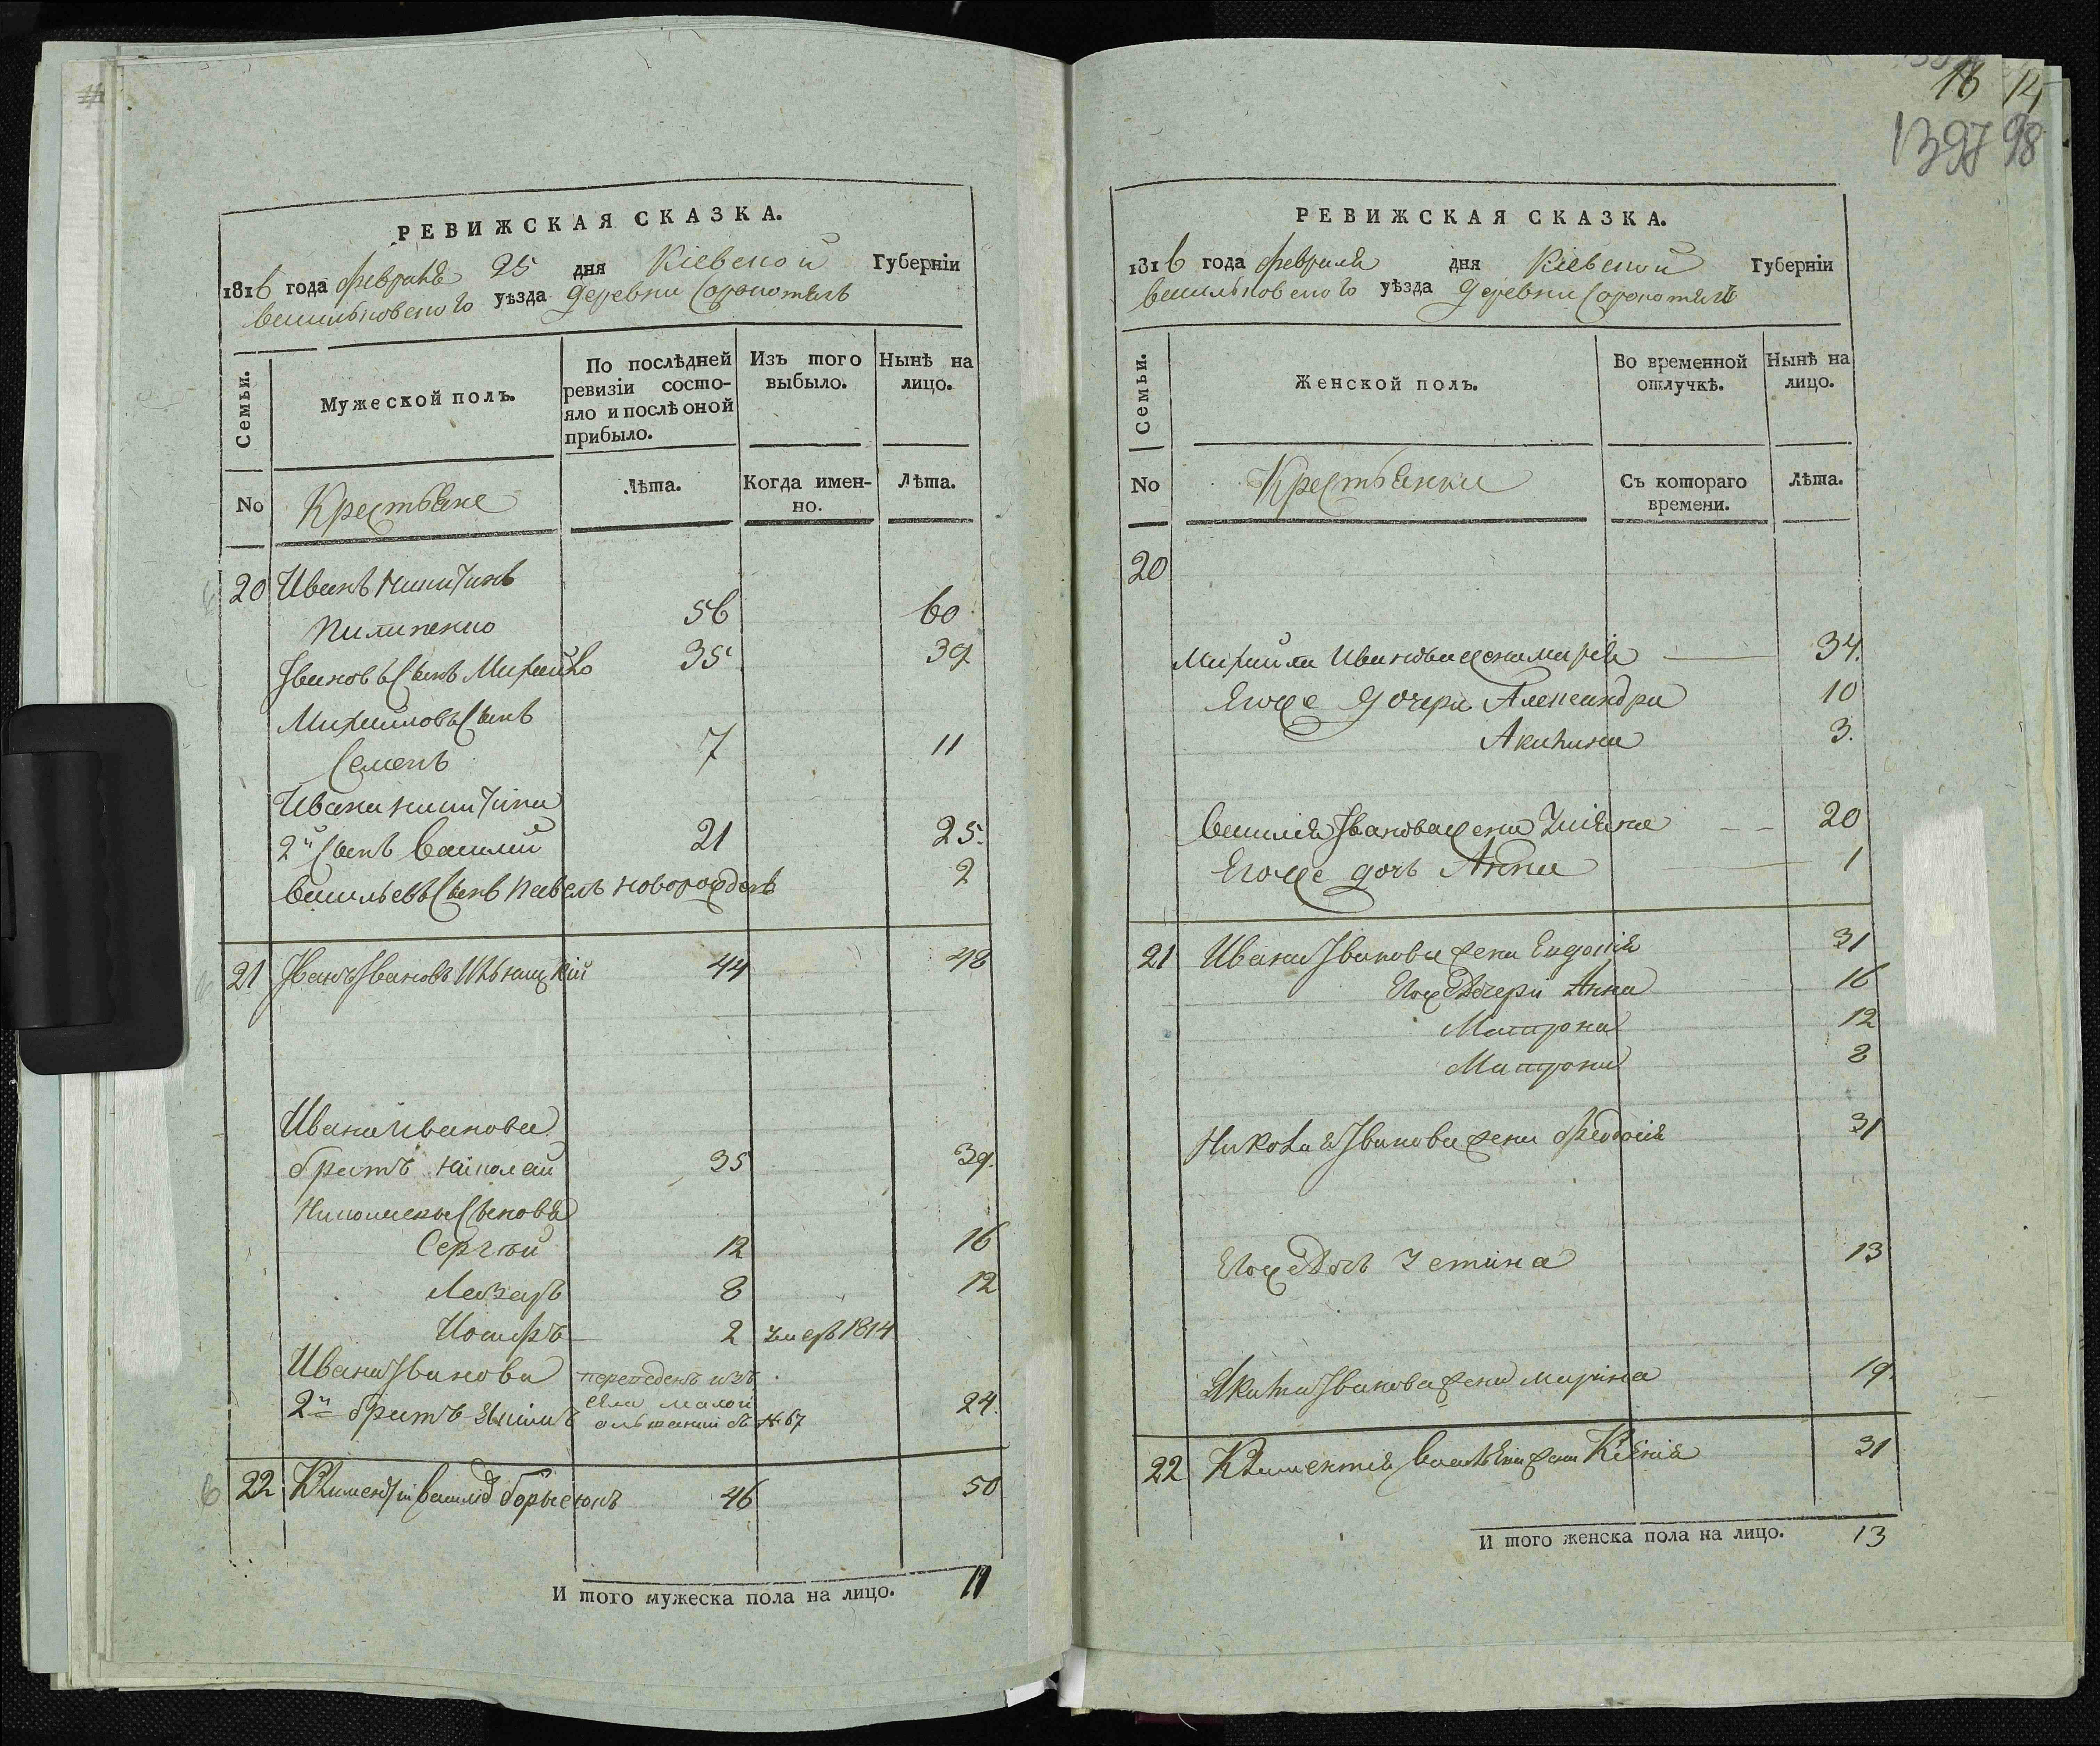 РЕВИЖСКАЯ СКАЗКА.
1816 года февраля 25 дня Кіевской Губерніи
Васильковского уѣзда деревни Сорокотягъ
Семьи.
Мужеской полъ.
По послѣдней ревизіи состо-
яло и послѣ оной прибыло.
Изъ того выбыло.
Нынѣ на лицо.
No
Крестьяне
Лѣта.
Когда имен-
но.
Лѣта.
20 Иванъ Никитинъ
Пилипенко 56 60
Ивановъ Сынъ Михайло 35 39
Михайловъ Сынъ
Семенъ 7 11
Ивана Никитина
2й Сынъ Василий 21 25.
Васильевъ Сынъ Павелъ новорожденъ 2
21 Иванъ Ивановъ 44 48
Ивана Иванова
братъ Николай 35 39.
Николаевы Сыновья
Сергѣй 12 16
Лазарь 8 12
Иосифъ 2 умеръ 1814
Ивана Иванова переведенъ изъ
2й братъ села малой 24.
ольшанки съ № 67
22 Климентий 46 50
И того мужеска пола на лицо. 11
16 14
1397 98
РЕВИЖСКАЯ СКАЗКА.
1816 года февраля дня Кіевской Губерніи
Васильковского уѣзда деревни Сорокотягъ
Семьи.
Женской полъ.
Во временной отлучкѣ.
Нынѣ на лицо.
No
Крестьянки
Съ котораго времени.
Лѣта.
20
Михайла Иванова жена Марія 34.
Егоже дочери Александра 10
Акилина 3.
Василія Иванова жена Уліяна 20
Егоже дочь Анна 1
21 Ивана Иванова жена Евдокія 31
Егоже Дочери Анна 16
Матрона 12
Матрона 8
Николая Иванова жена Феодосія 31
Егоже Дочь Устина 13
Якима Иванова жена Марина 19.
22 Климентия жена Ксенія 31
И того женска пола на лицо. 13